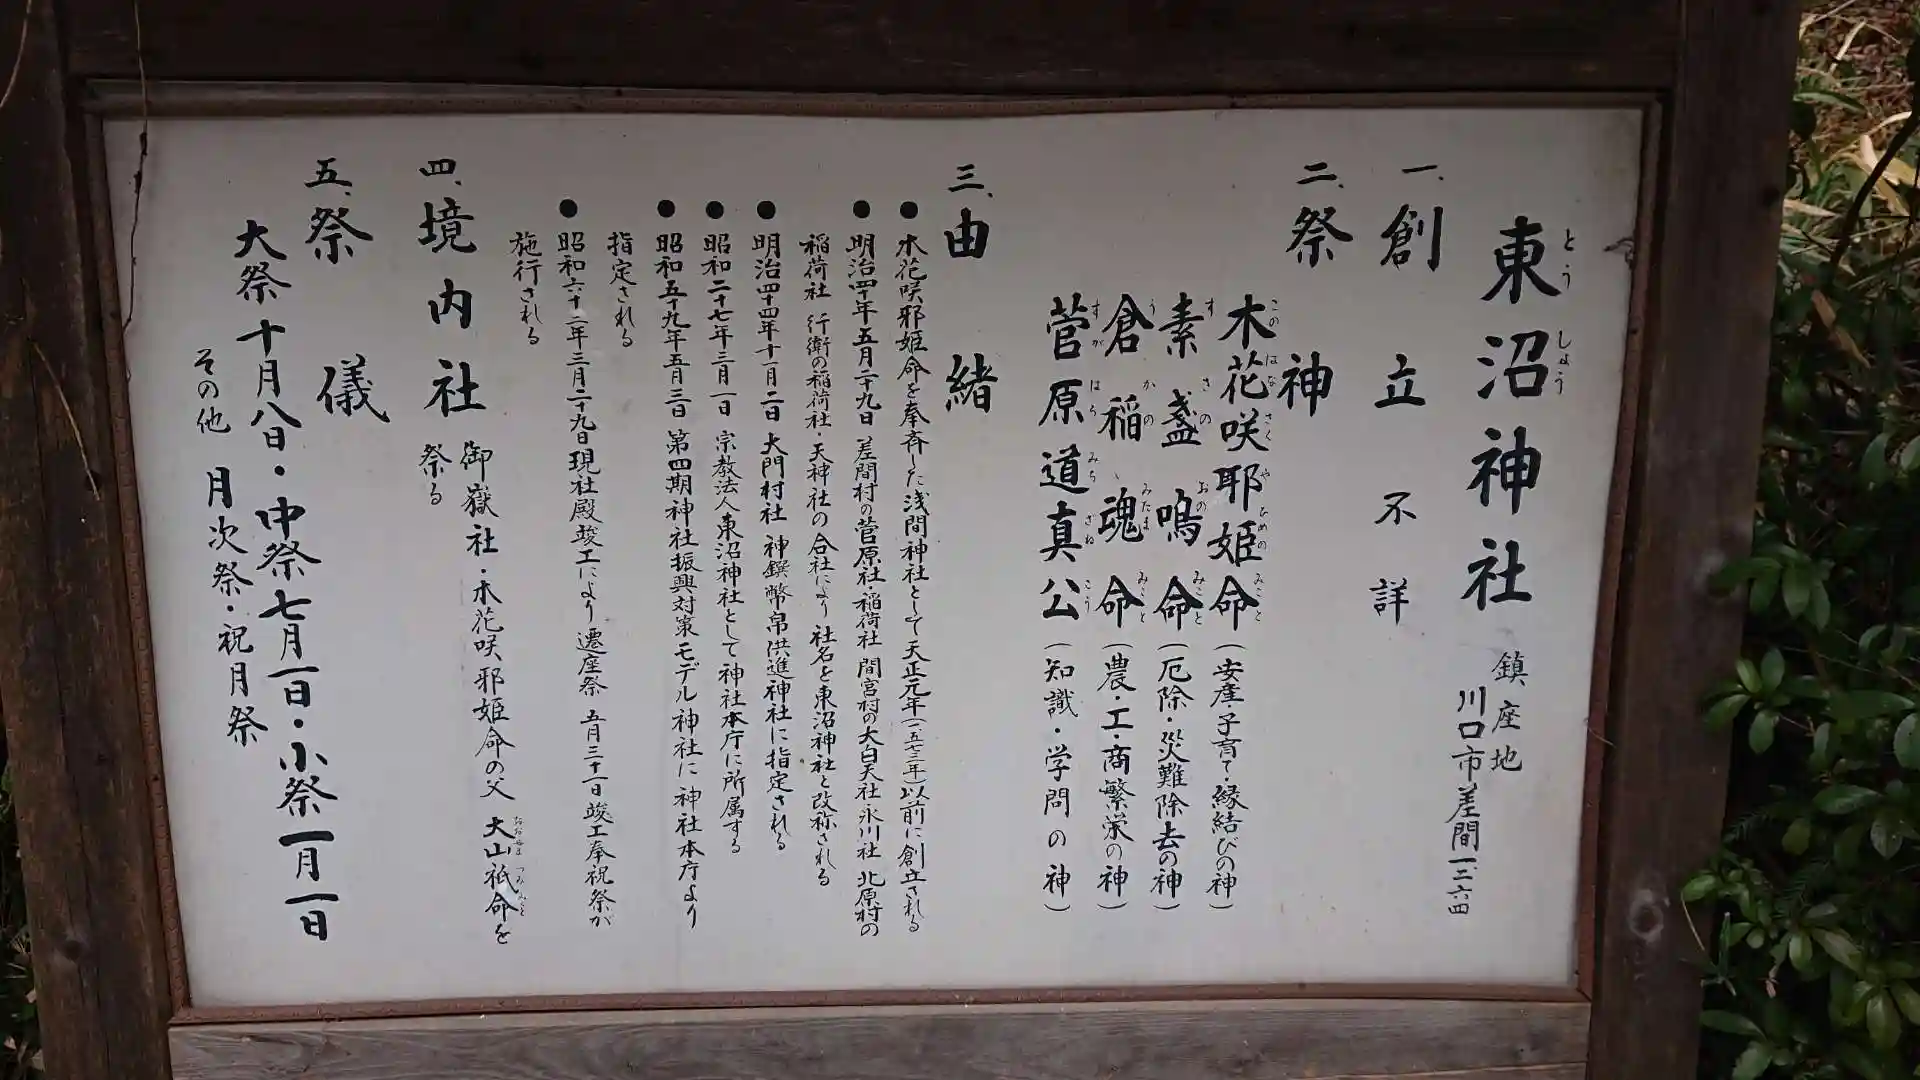 東沼神社
とうしょう
鎮座地
川口市差間一、三、六四
一、創立不詳
二、祭神
木花咲耶姫命（安産・子育て・縁結びの神）
このはなさくやひめのみこと
素盞嗚命（厄除・災難除去の神）
すさのおのみこと
倉稲魂命（農・工・商繁栄の神）
うかのみたまみこと
菅原道真公（知識・学問の神）
すがはらみちざねこう
三、由緒
●木花咲邪姫命を奉斉した浅間神社として天正元年（一五七三年）以前に創立される
●明治四十年五月二十九日 差間村の菅原社・稲荷社 間宮村の大白天社 氷川社 北原村の
稲荷社 行衛の稲荷社・天神社の合社により 社名を東沼神社と改称される
●明治四十四年十一月二日 大門村社 神饌幣帛供進神社に指定される
●昭和二十七年三月一日 宗教法人東沼神社として神社本庁に所属する
●昭和五十九年五月三日 第四期神社振興対策モデル神社に神社本庁より
指定される
●昭和六十二年三月二十九日現社殿竣工により 遷座祭 五月三十一日竣工奉祝祭が
施行される
四、境内社
御嶽社・木花咲邪姫命の父 大山祇命を
おおやまつみみこと
祭る
五、祭儀
大祭十月八日・中祭七月一日・小祭一月一日
その他 月次祭・祝月祭